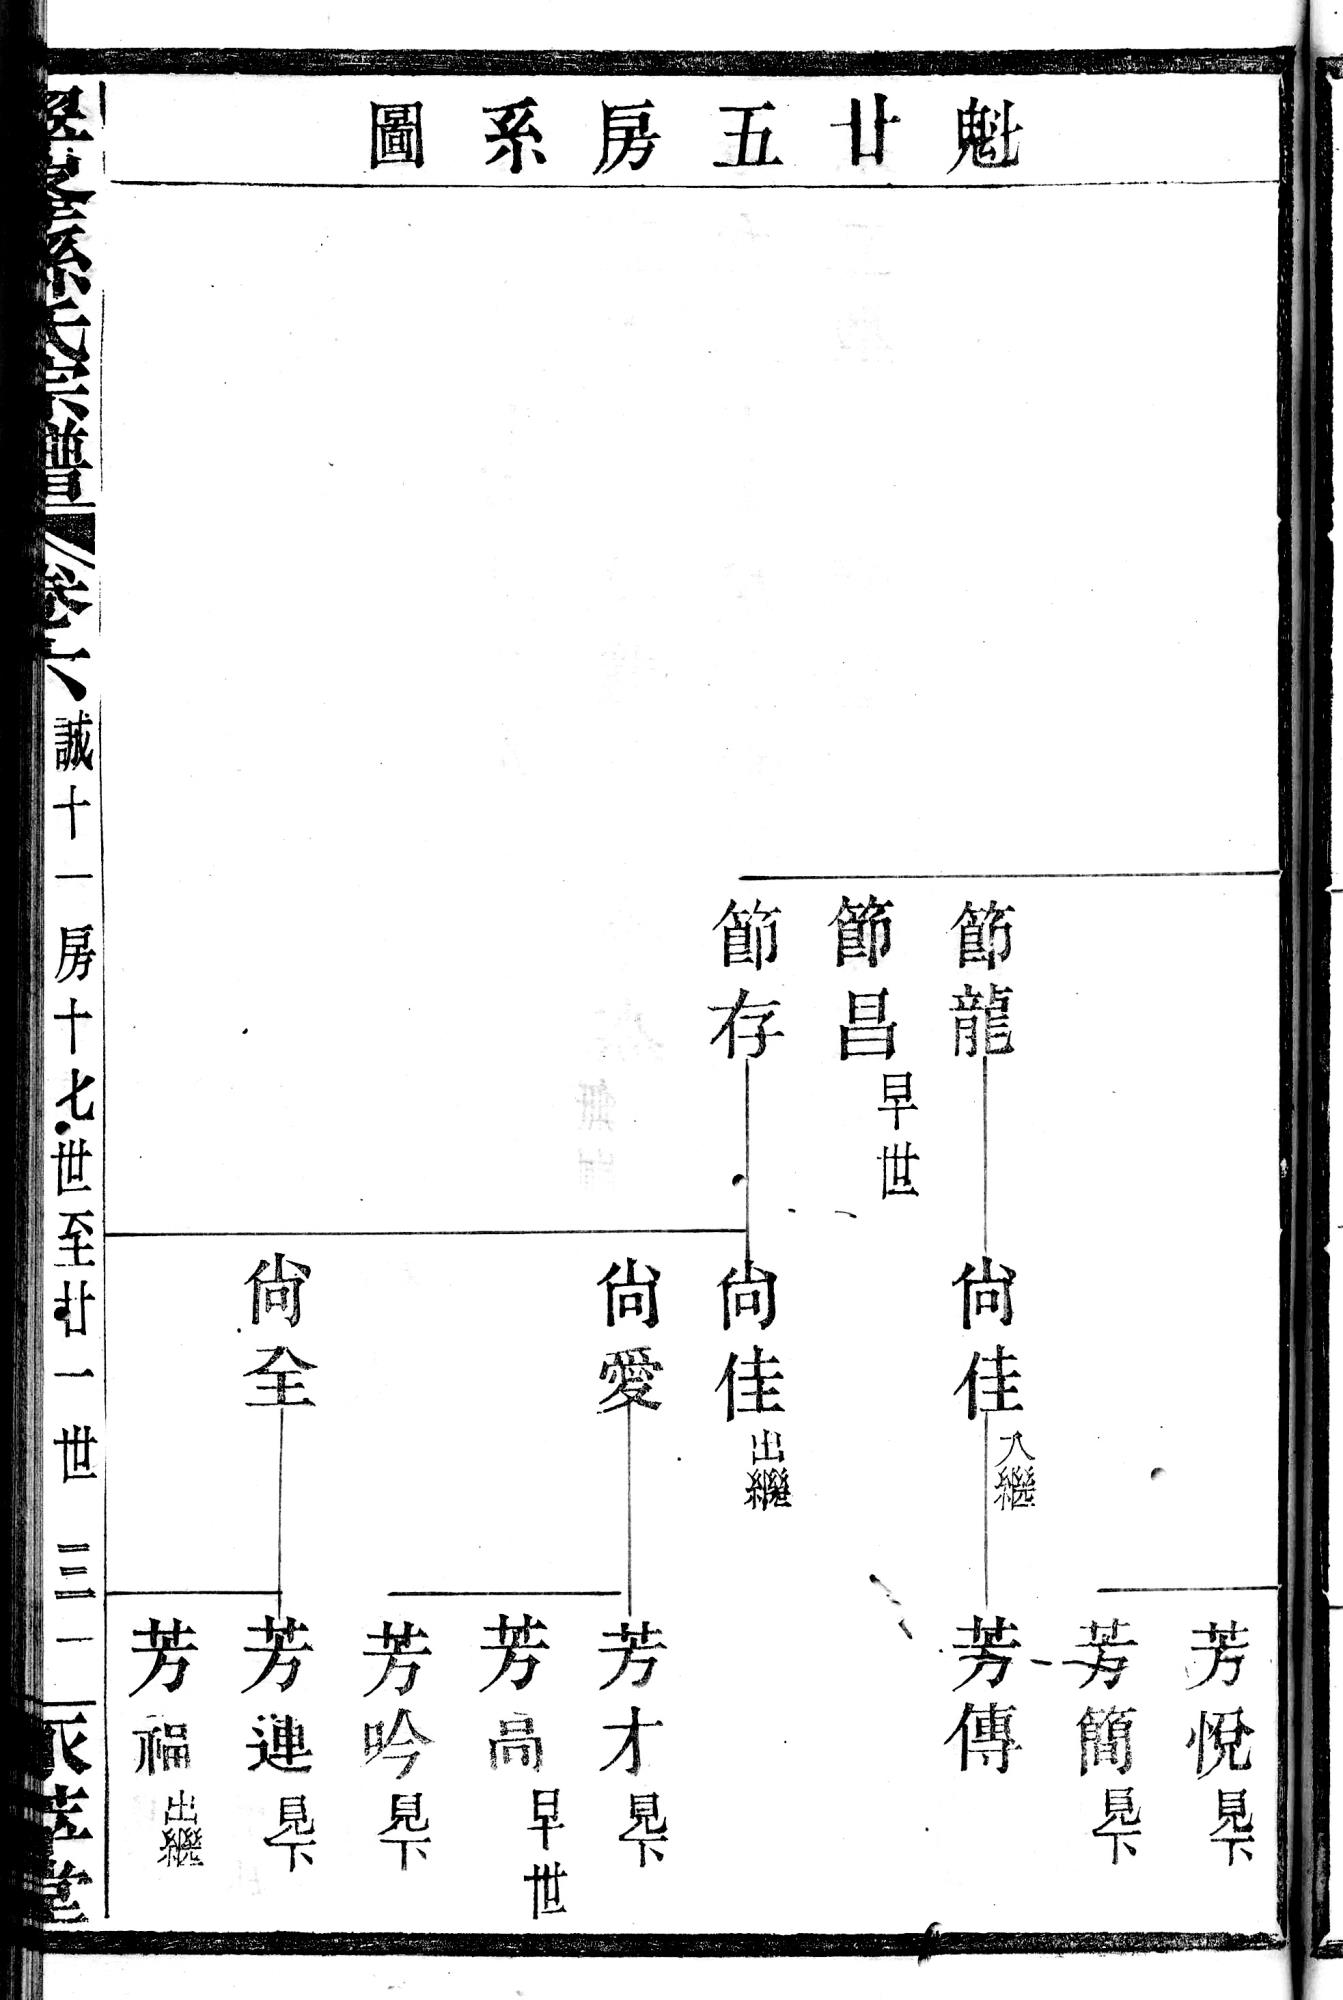 魁廿五房系圖
節龍
節昌 早世
節存
尙佳 入繼
尙佳 出繼
尙愛
尙全
芳悅 見下
芳簡 見下
芳傳
芳才 見下
芳高 早世
芳吟 見下
芳連 見下
芳福 出繼
孫氏宗譜
卷六
誠十一房十七世至廿一世 三一
堂